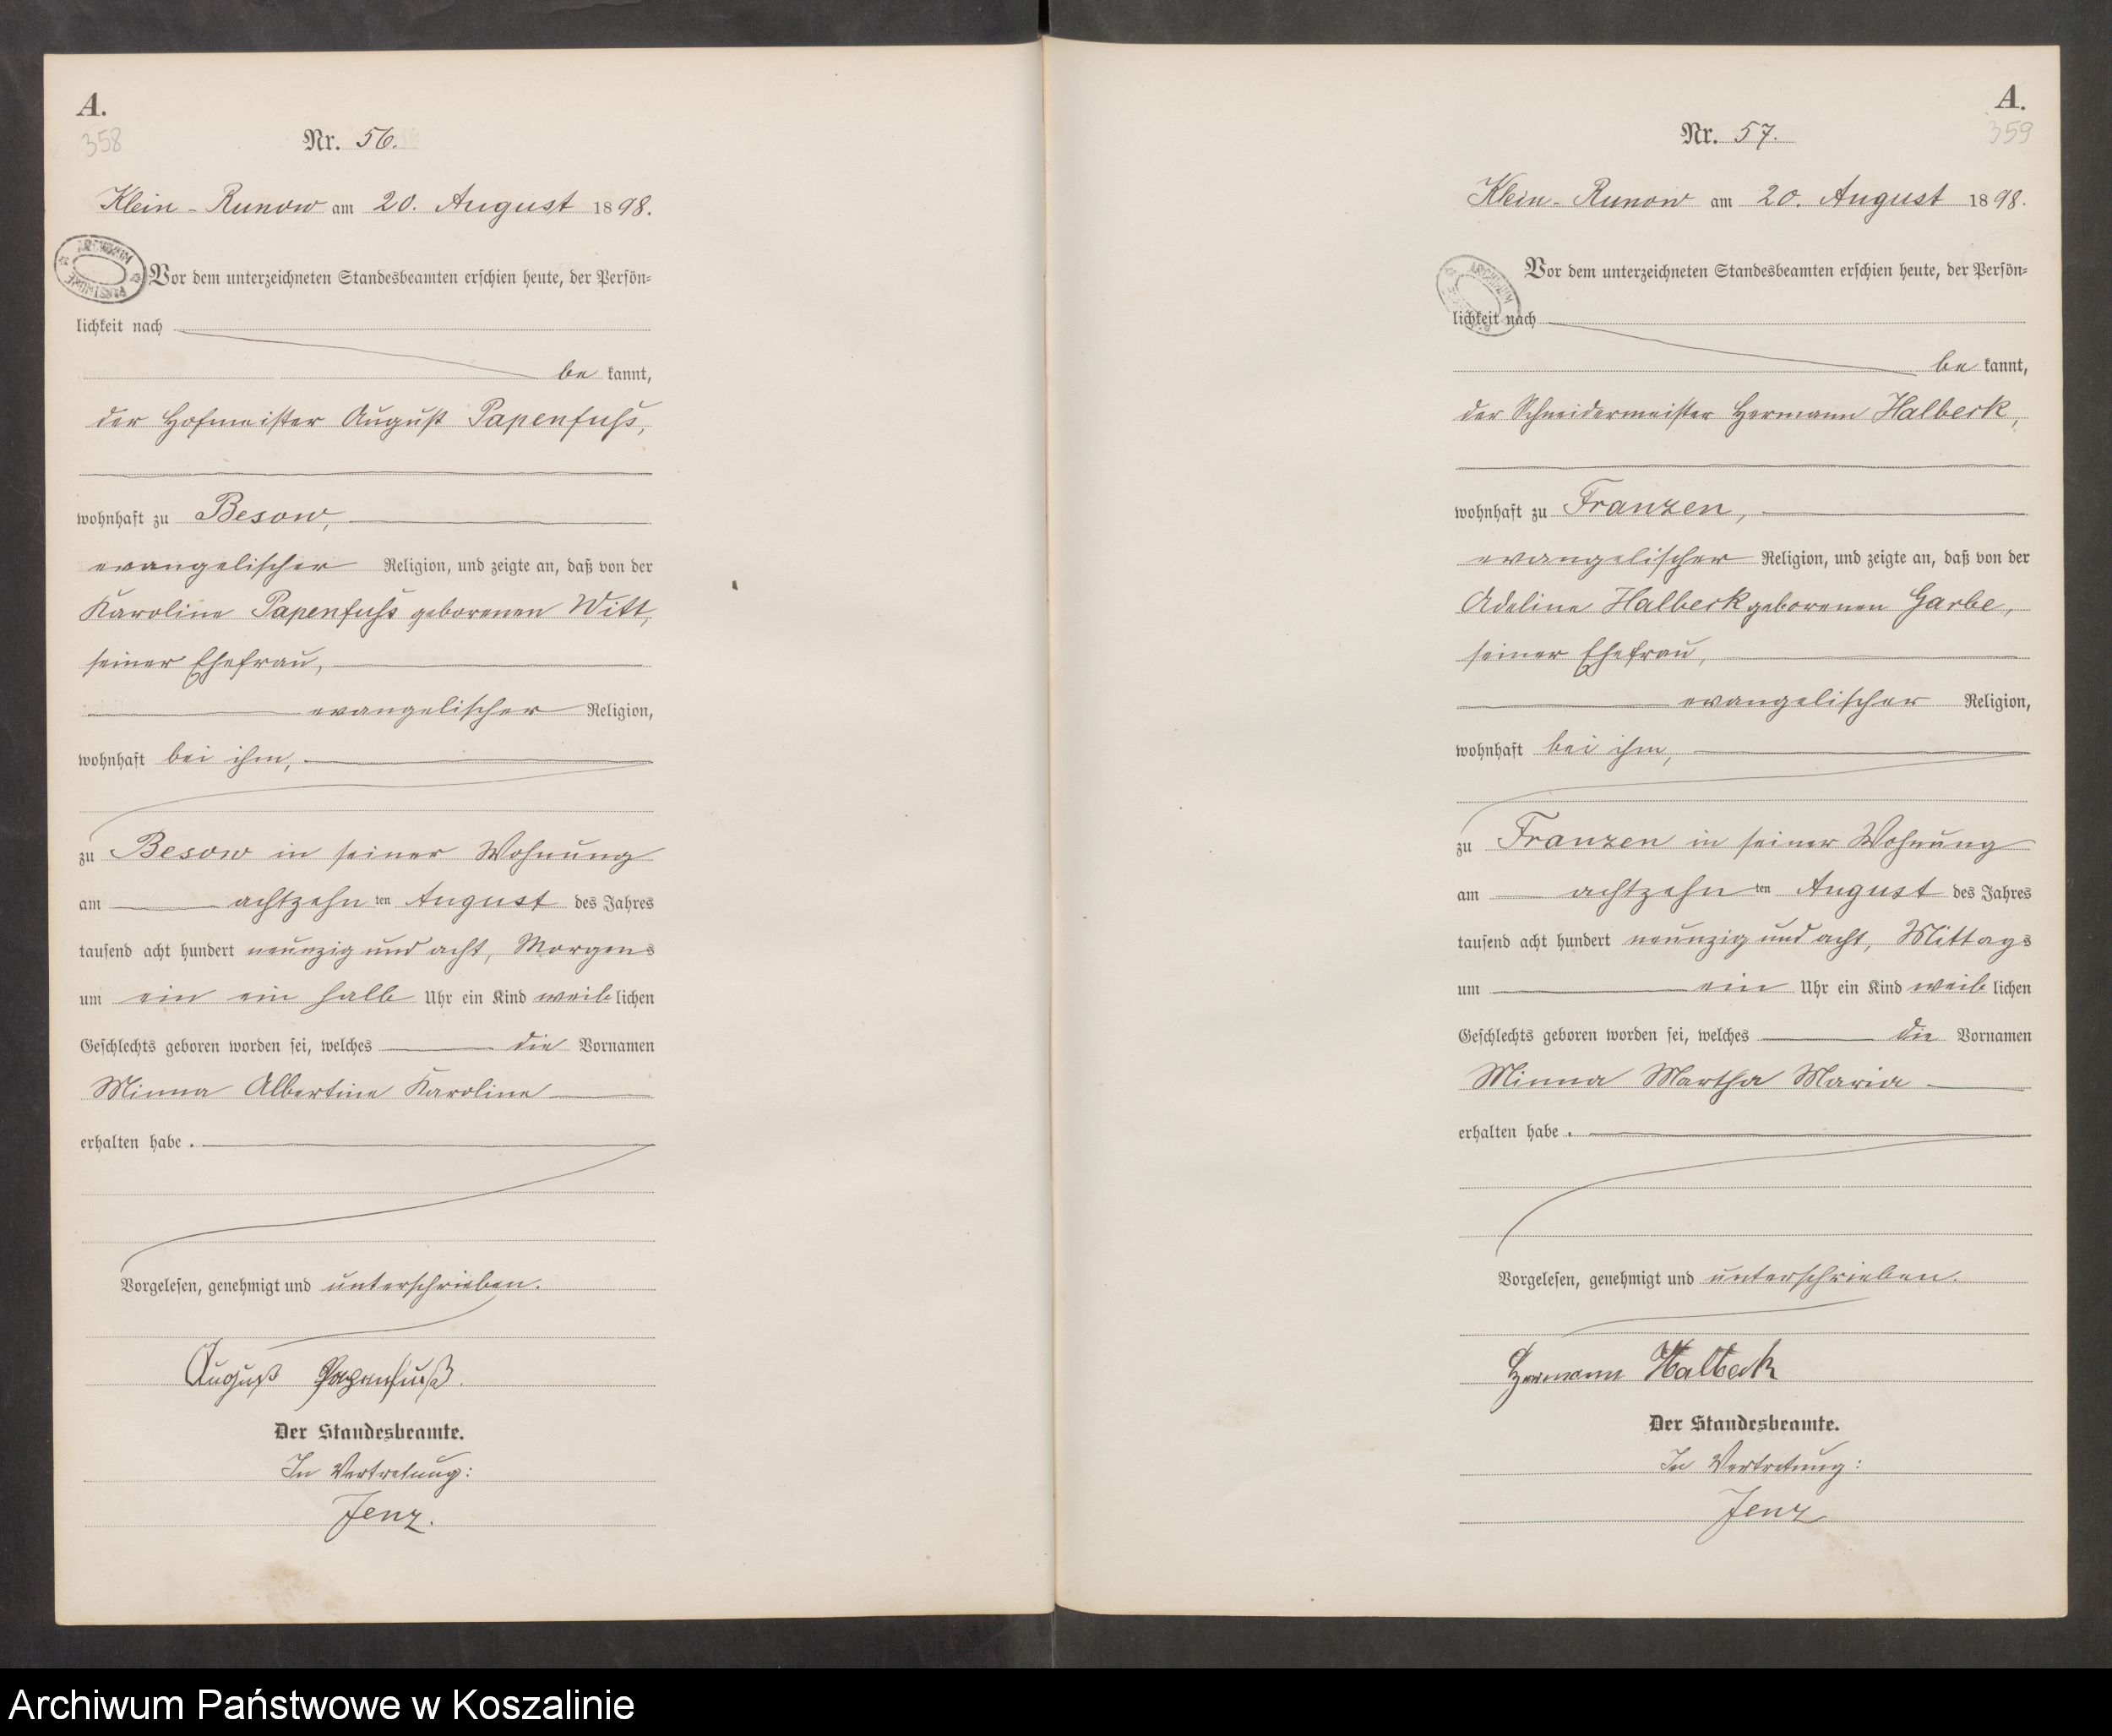 A.
358
Nr. 56.
Klein-Runow am 20. August 1898.
ARCHIWUM PAŃSTWOWE
Vor dem unterzeichneten Standesbeamten erschien heute, der Persön=
lichkeit nach
be kannt,
der Hofmeister August Papenfuhs,
wohnhaft zu Besow,
evangelischer Religion, und zeigte an, daß von der
Karoline Papenfuhs geborenen Witt,
seiner Ehefrau,
evangelischer Religion,
wohnhaft bei ihm,
zu Besow in seiner Wohnung
am achtzehn ten August des Jahres
tausend acht hundert neunzig und acht, Morgens
um ein ein halb Uhr ein Kind weib lichen
Geschlechts geboren worden sei, welches die Vornamen
Minna Albertine Karoline
erhalten habe.
Vorgelesen, genehmigt und unterschrieben.
August Papenfuß.
Der Standesbeamte.
In Vertretung:
Jenz.
A.
359
Nr. 57.
Klein-Runow am 20. August 1898.
ARCHIWUM
Vor dem unterzeichneten Standesbeamten erschien heute, der Persön=
lichkeit nach
be kannt,
der Schneidermeister Hermann Halbeck,
wohnhaft zu Franzen,
evangelischer Religion, und zeigte an, daß von der
Adeline Halbeck geborenen Garbe,
seiner Ehefrau,
evangelischer Religion,
wohnhaft bei ihm,
zu Franzen in seiner Wohnung
am achtzehn ten August des Jahres
tausend acht hundert neunzig und acht, Mittags
um ein Uhr ein Kind weib lichen
Geschlechts geboren worden sei, welches die Vornamen
Minna Martha Maria
erhalten habe.
Vorgelesen, genehmigt und unterschrieben.
Hermann Halbeck
Der Standesbeamte.
In Vertretung:
Jenz
Archiwum Państwowe w Koszalinie